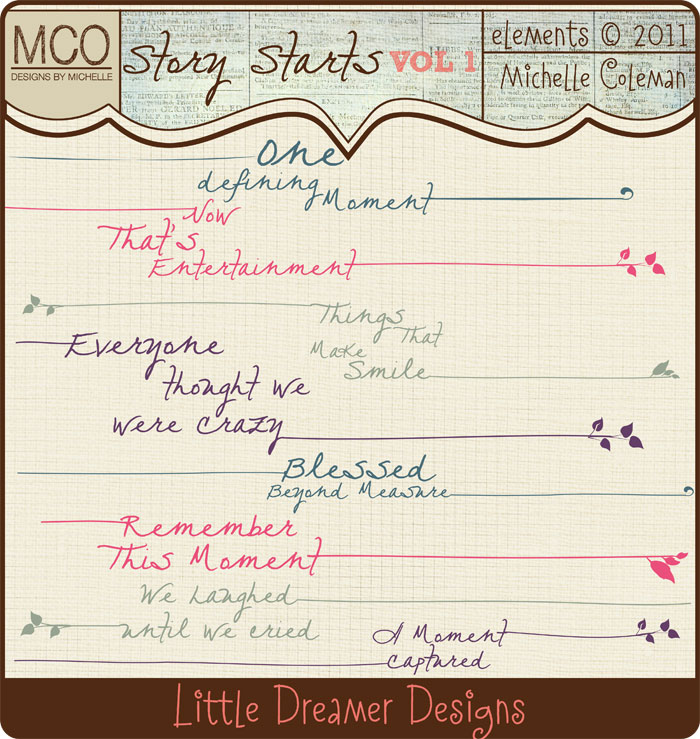 MCO
DESIGNS BY MICHELLE
Story Starts VOL 1
eLements © 2011
Michelle Coleman
One
defining Moment
Now
That's
Entertainment
Things
That
Make
Smile
Everyone
thought we
were crazy
Blessed
Beyond Measure
Remember
This Moment
We Laughed
until we cried
A Moment
captured
Little Dreamer Designs